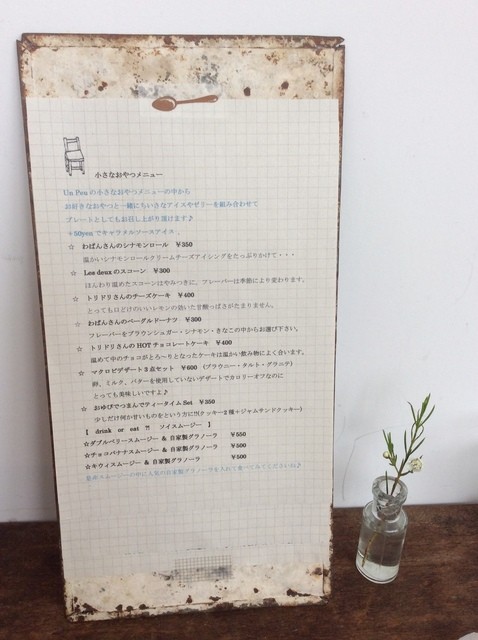 小さなおやつメニュー
Un Peuの小さなおやつメニューの中から
お好きなおやつと一緒にちいさなアイスやゼリーを組み合わせて
プレートとしてもお召し上がり頂けます♪
+50yenでキャラメルソースアイス
☆ わぱんさんのシナモンロール ¥350
温かいシナモンロールクリームチーズアイシングをたっぷりかけて・・・
☆ Lee deuxのスコーン ¥300
ほんわり温めたスコーンはやみつきに、フレーバーは季節により変わります。
☆ トリドリさんのチーズケーキ ¥400
とっても口どけのいいレモンの効いた甘酸っぱさがたまりません。
☆ わぱんさんのベーグルドーナツ ¥300
フレーバーをブラウンシュガー・シナモン・きなこの中からお選び下さい。
☆ トリドリさんのHOTチョコレートケーキ ¥400
温めて中のチョコがとろ〜りとなったケーキは温かい飲み物によく合います。
☆ マクロビデザート2点セット ¥600 (ブラウニー・タルト・グラニテ)
卵、ミルク、バターを使用していないデザートでカロリーオフなのに
とっても美味しいですよ♪
☆ おゆびでつまんでティータイムSet ¥350
少しだけ何か甘いものをという方に!!(クッキー2種+ジャムサンドクッキー)
【 drink or eat ?! ソイスムージー 】
☆ダブルベリースムージー & 自家製グラノーラ ¥550
☆チョコバナナスムージー & 自家製グラノーラ ¥500
☆キウイスムージー & 自家製グラノーラ ¥500
是非スムージーの中に人気の自家製グラノーラを入れて食べてみてくださいね♪